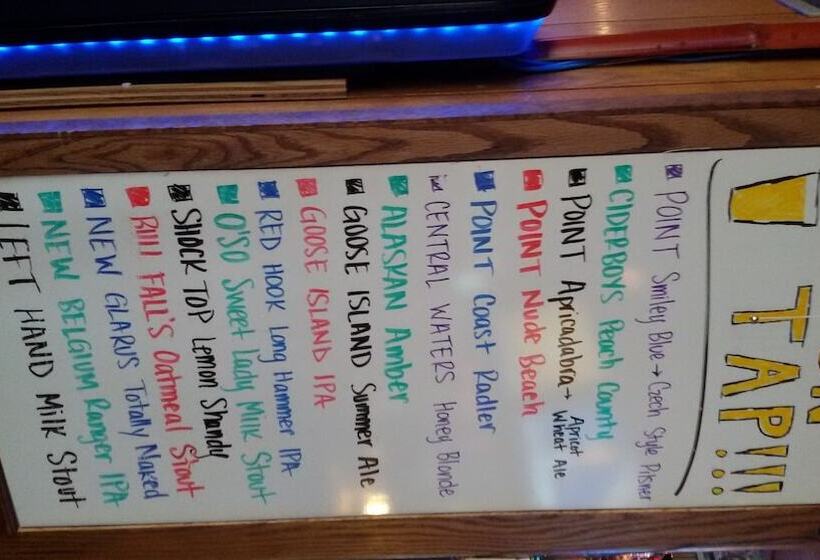 TAP!!!
POINT Smiley Blue → Czech Style Pilsner
CIDERBOYS Peach County
POINT Apricadabra → Apricot
Wheat Ale
POINT Nude Beach
POINT Coast Radler
CENTRAL WATERS Honey Blonde
ALASKAN Amber
GOOSE ISLAND Summer Ale
GOOSE ISLAND IPA
RED HOOK Long Hammer IPA
O'SO Sweet Lady Milk Stout
SHOCK TOP Lemon Shandy
FALL'S Oatmeal Stout
NEW GLARUS Totally Naked
NEW BELGIUM Ranger IPA
LEFT HAND Milk Stout